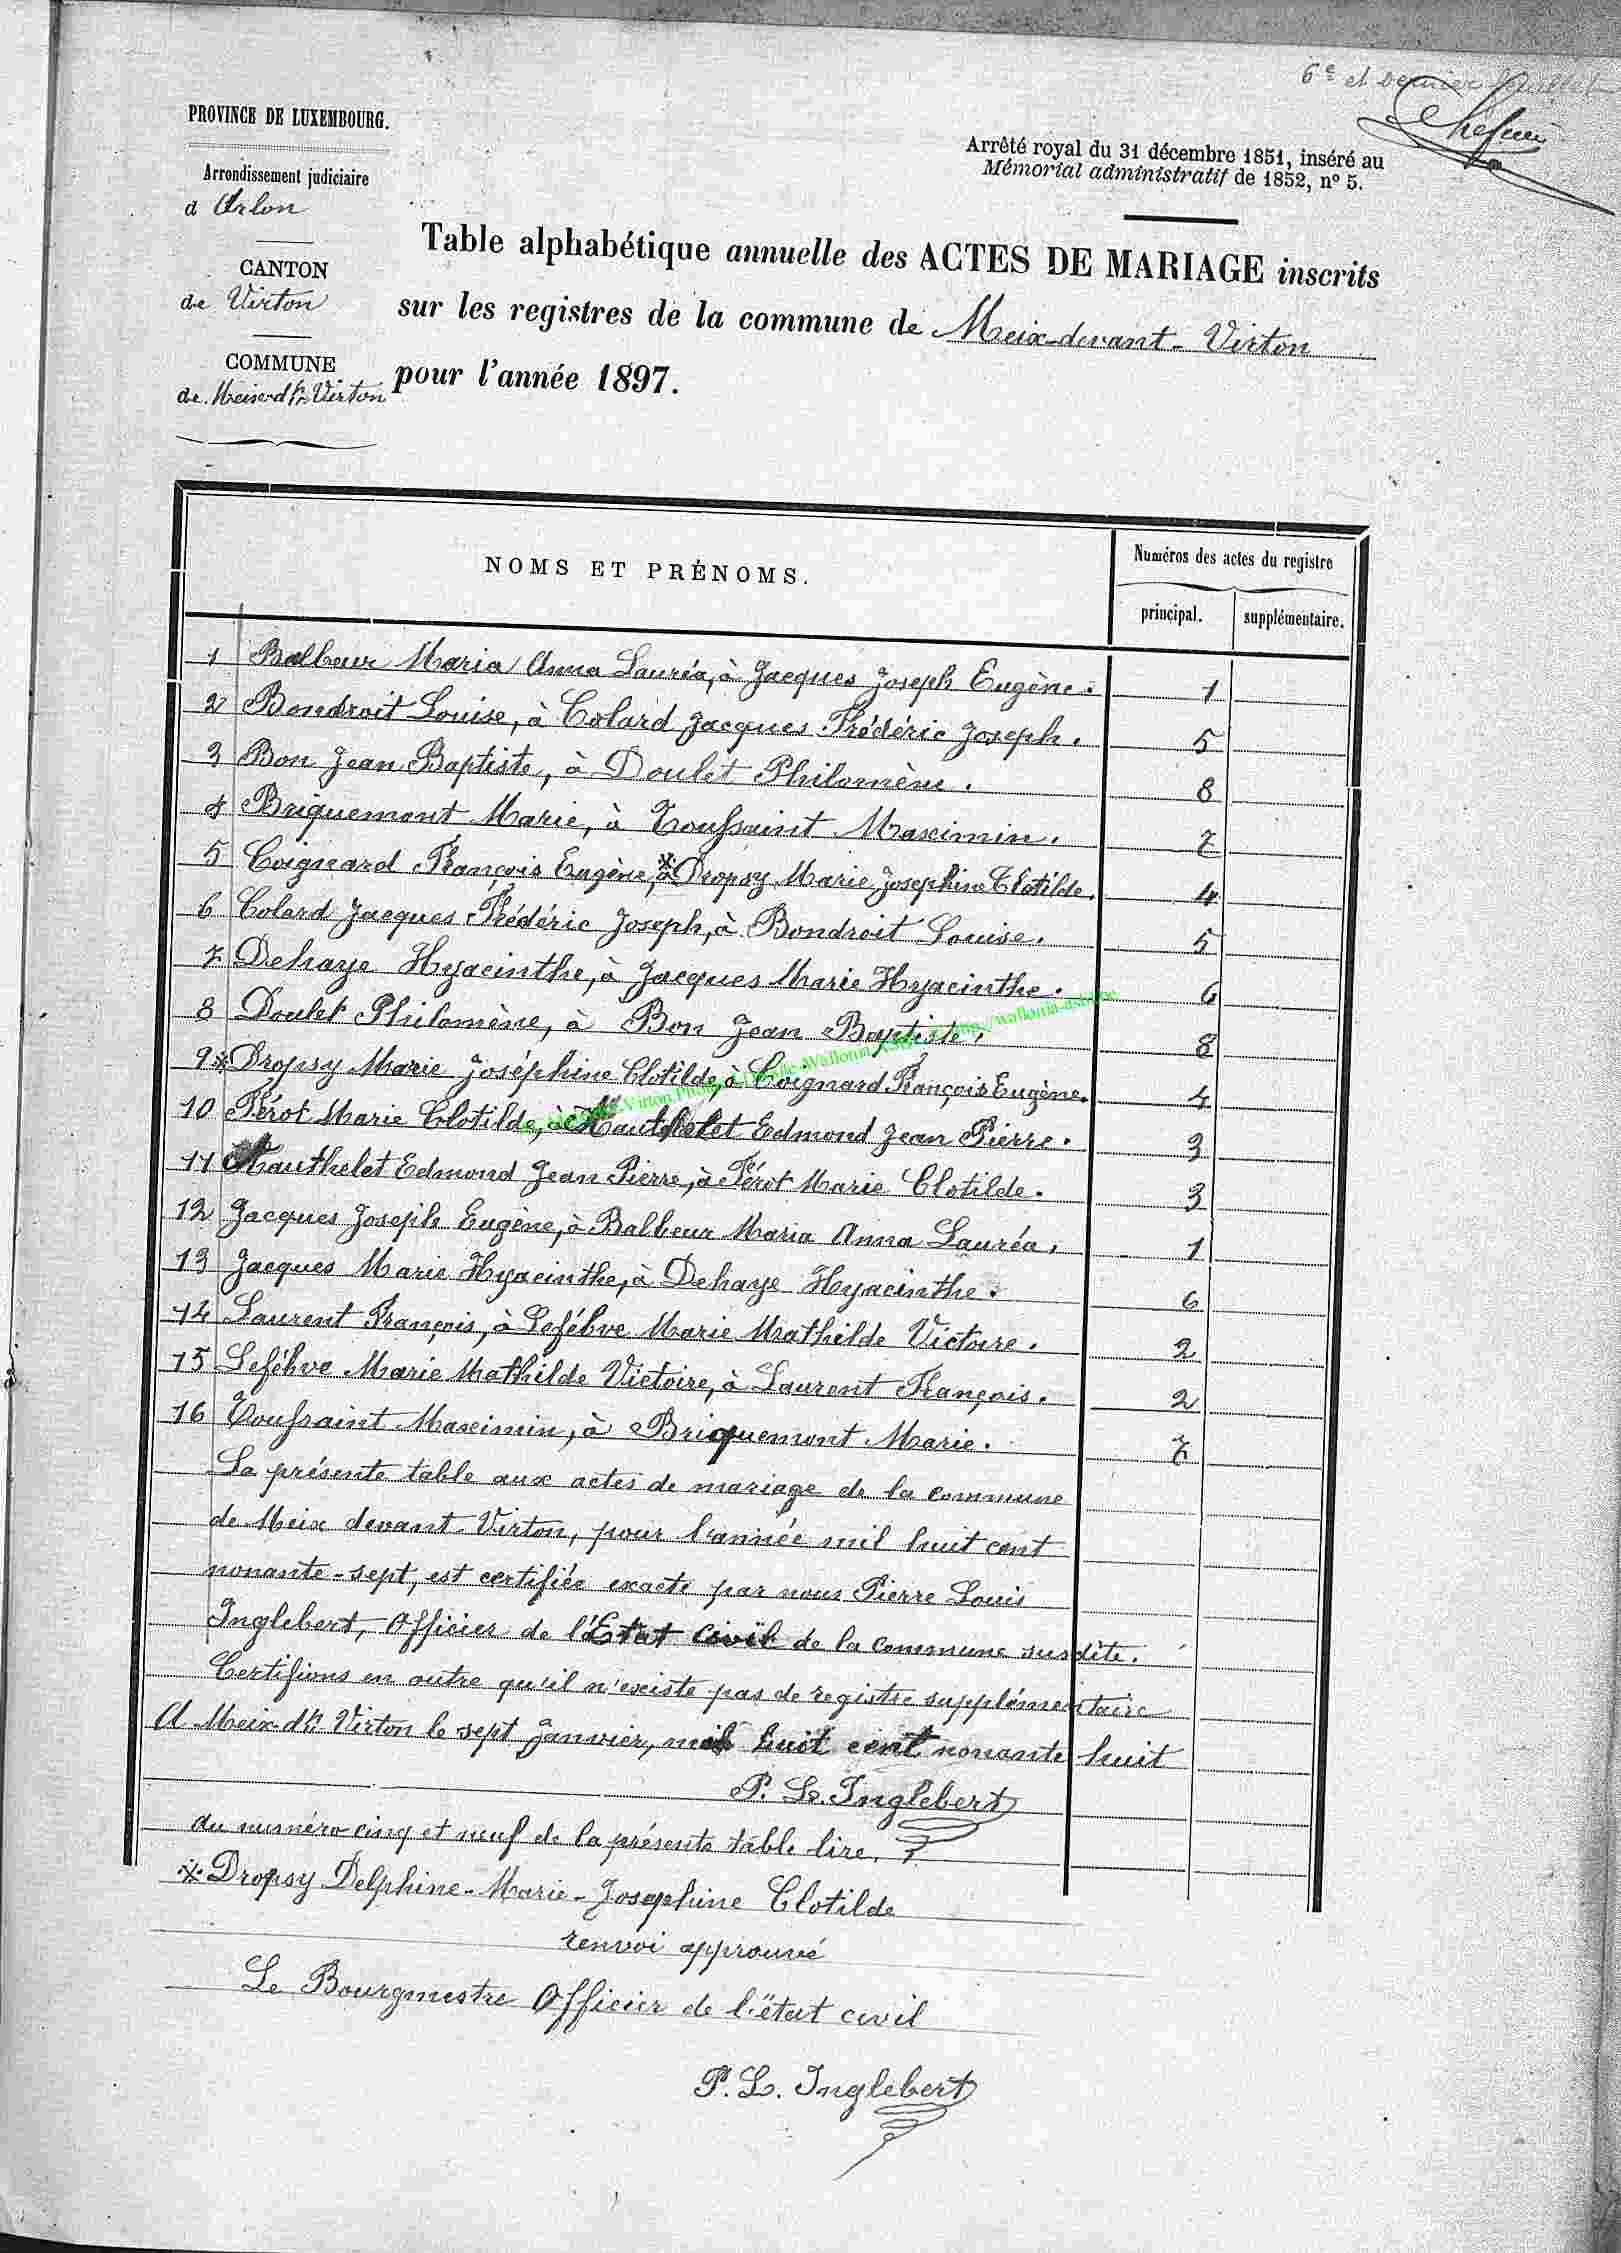 6e et dernier feuillet
PROVINCE DE LUXEMBOURG.
Arrondissement judiciaire
d'Arlon
CANTON
de Virton
COMMUNE
de Meix-dt-Virton
Arrêté royal du 31 décembre 1851, inséré au
Mémorial administratif de 1852, no 5.
Table alphabétique annuelle des ACTES DE MARIAGE inscrits
sur les registres de la commune de Meix-devant-Virton
pour l'année 1897.
NOMS ET PRÉNOMS.
Numéros des actes du registre
principal. supplémentaire.
1 Balbeur Maria Anna Lauréa, à Jacques Joseph Eugène. 1
2 Bondroit Louise, à Colard Jacques Frédéric Joseph. 5
3 Bon Jean Baptiste, à Doulet Philomène. 8
4 Briquemont Marie, à Toussaint Maximin. 7
5 Coignard François Eugène, à * Dropsy Marie Josephine Clotilde. 4
6 Colard Jacques Frédéric Joseph, à Bondroit Louise. 5
7 Dehaye Hyacinthe, à Jacques Marie Hyacinthe. 6
8 Doulet Philomène, à Bon Jean Baptiste. 8
9 * Dropsy Marie Joséphine Clotilde, à Coignard François Eugène. 4
10 Férot Marie Clotilde, à Hauthelet Edmond Jean Pierre. 3
11 Hauthelet Edmond Jean Pierre, à Férot Marie Clotilde. 3
12 Jacques Joseph Eugène, à Balbeur Maria Anna Lauréa. 1
13 Jacques Marie Hyacinthe, à Dehaye Hyacinthe. 6
14 Laurent François, à Lefébve Marie Mathilde Victoire. 2
15 Lefébve Marie Mathilde Victoire, à Laurent François. 2
16 Toussaint Maximin, à Briquemont Marie. 7
La présente table aux actes de mariage de la commune
de Meix devant Virton, pour l'année mil huit cent
nonante-sept, est certifiée exacte par nous Pierre Louis
Inglebert, Officier de l'Etat civil de la commune susdite.
Certifions en outre qu'il n'existe pas de registre supplémentaire
A Meix dt Virton le sept Janvier, mil huit cent nonante huit
P. L. Inglebert
au numéro cinq et neuf de la présente table lire.
* Dropsy Delphine-Marie-Josephine Clotilde
renvoi approuvé
Le Bourgmestre Officier de l'état civil
P. L. Inglebert